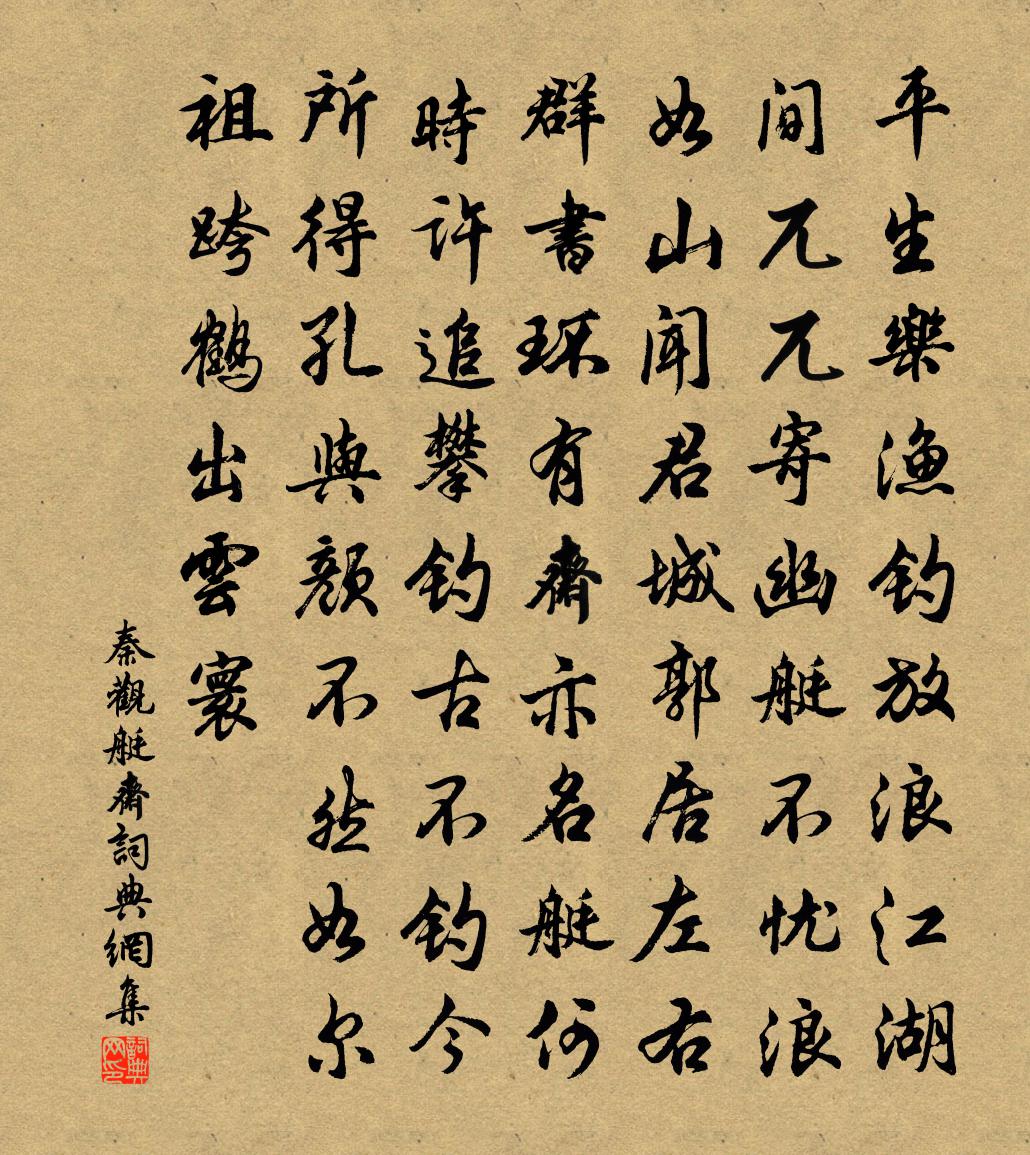 平生樂漁钓放浪江湖
间兀兀寄幽艇不忧浪
如山闻君城郭居左右
群書环有齋亦名艇何
時许追攀钓古不钓今
所得孔與顔不然如尔
祖跨鶴出雲寰
秦觀艇齋詞典網集
詞典网印